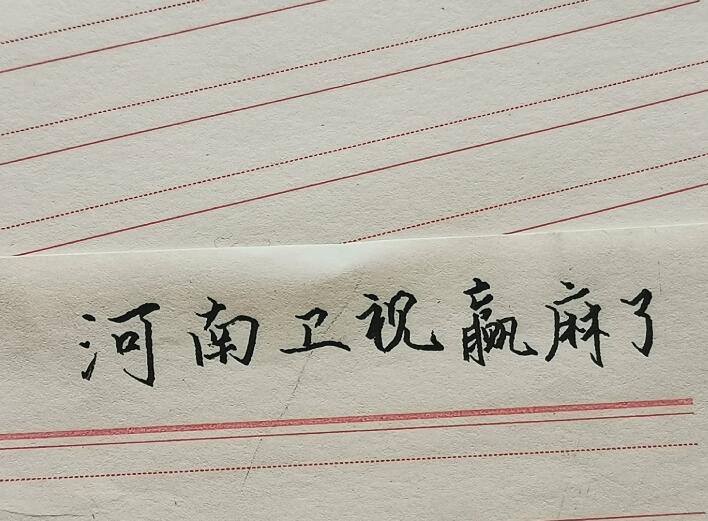 河南卫视赢麻了